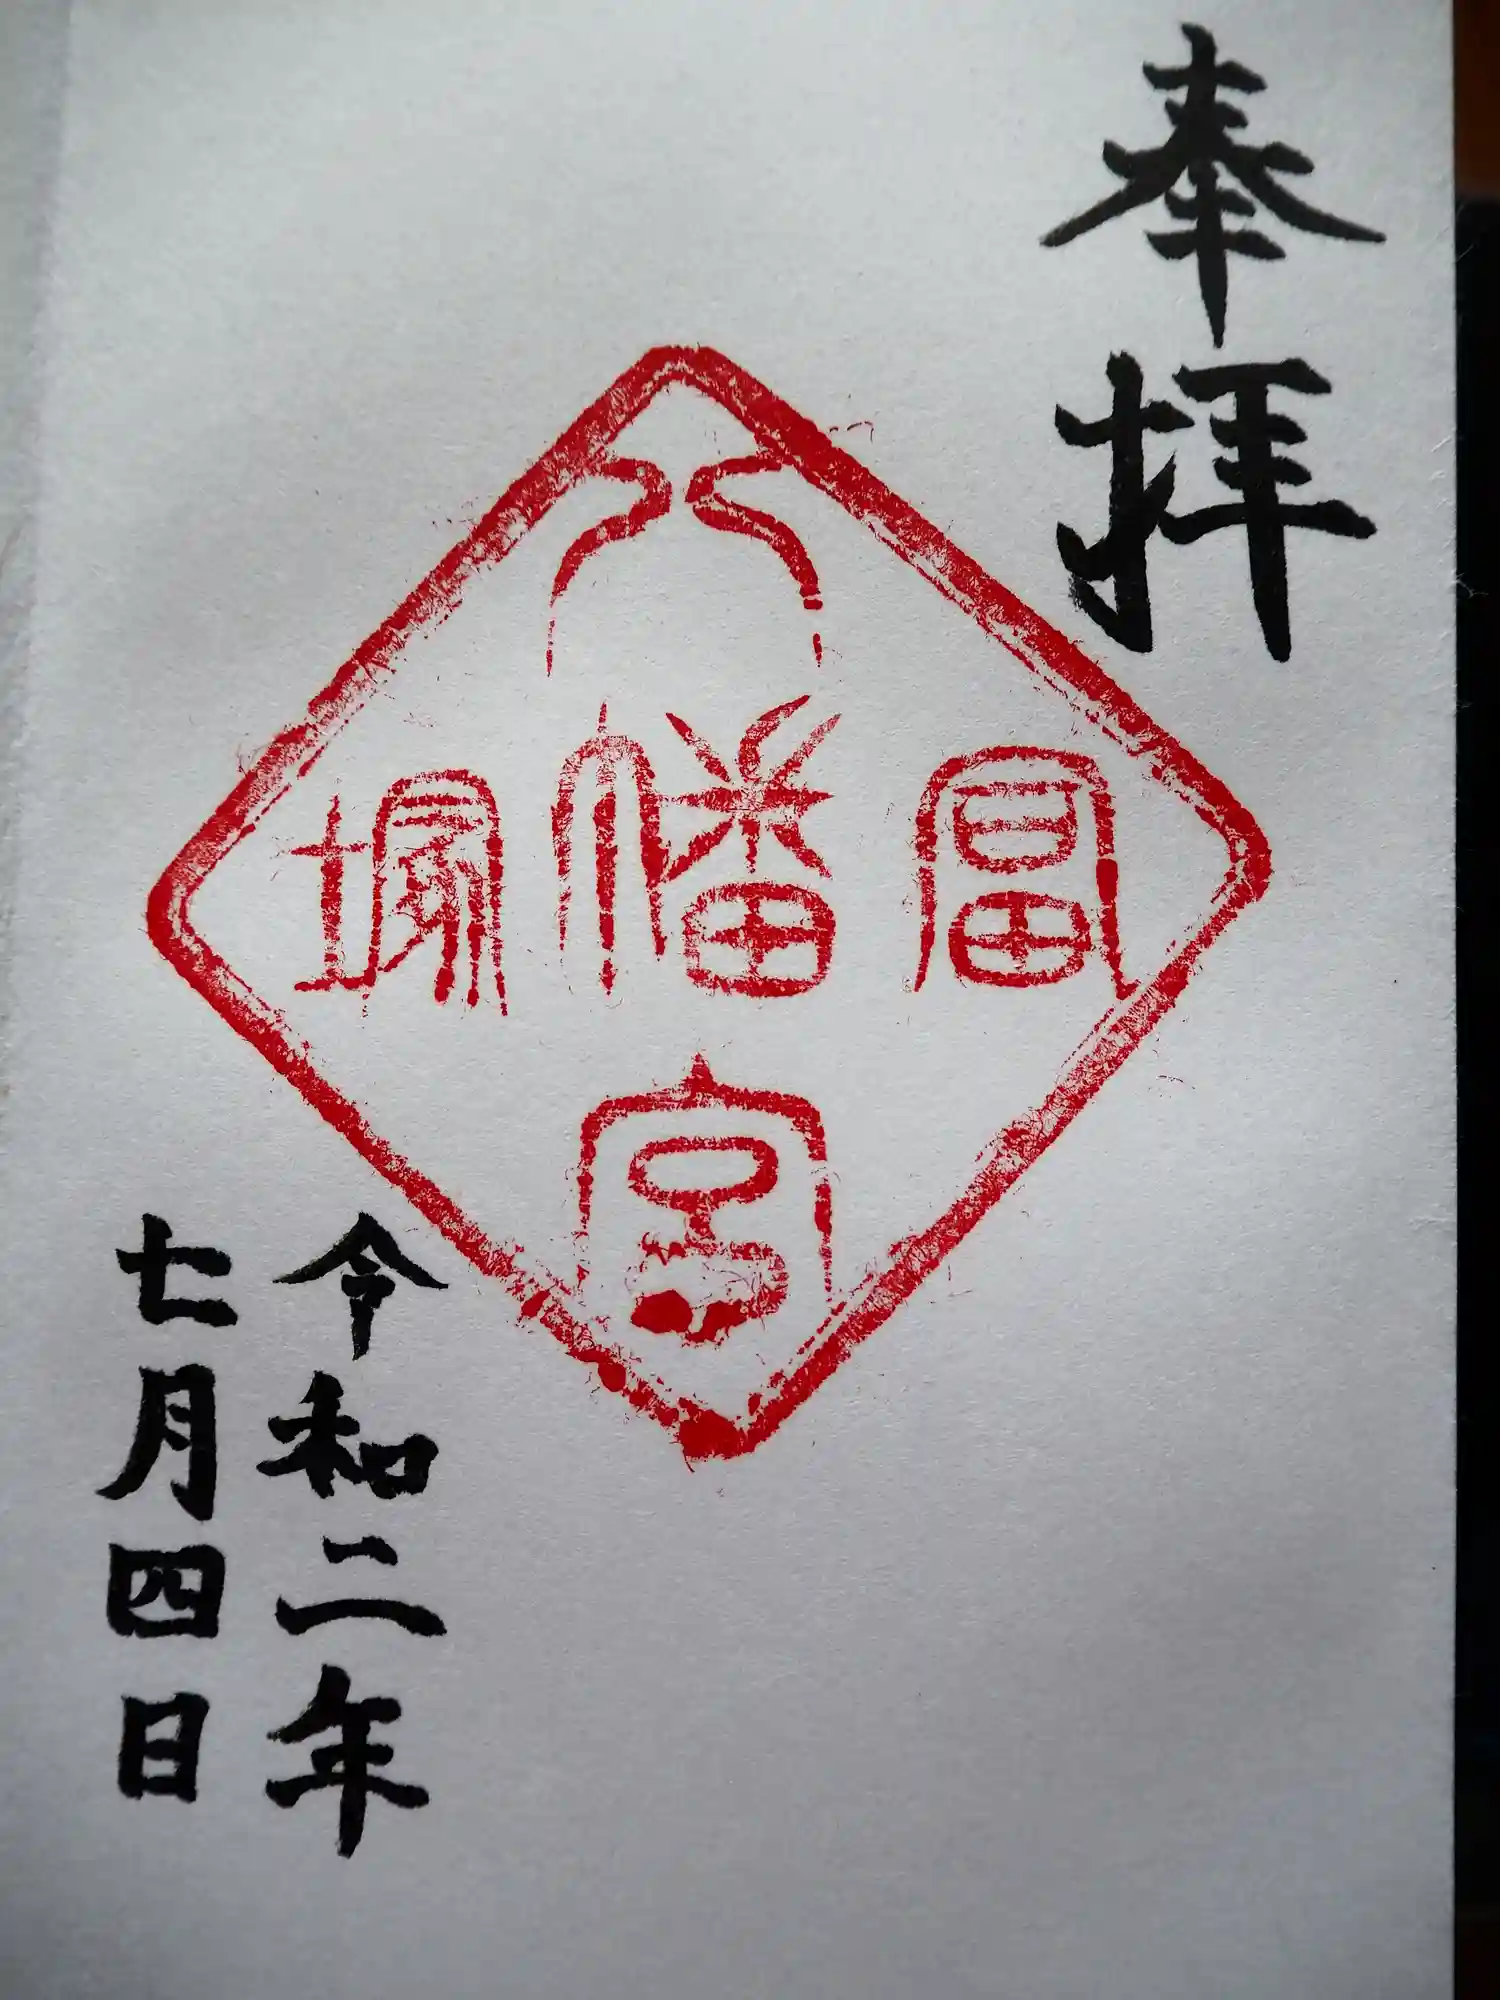 奉拝
冨塚
八幡宮
令和二年
七月四日